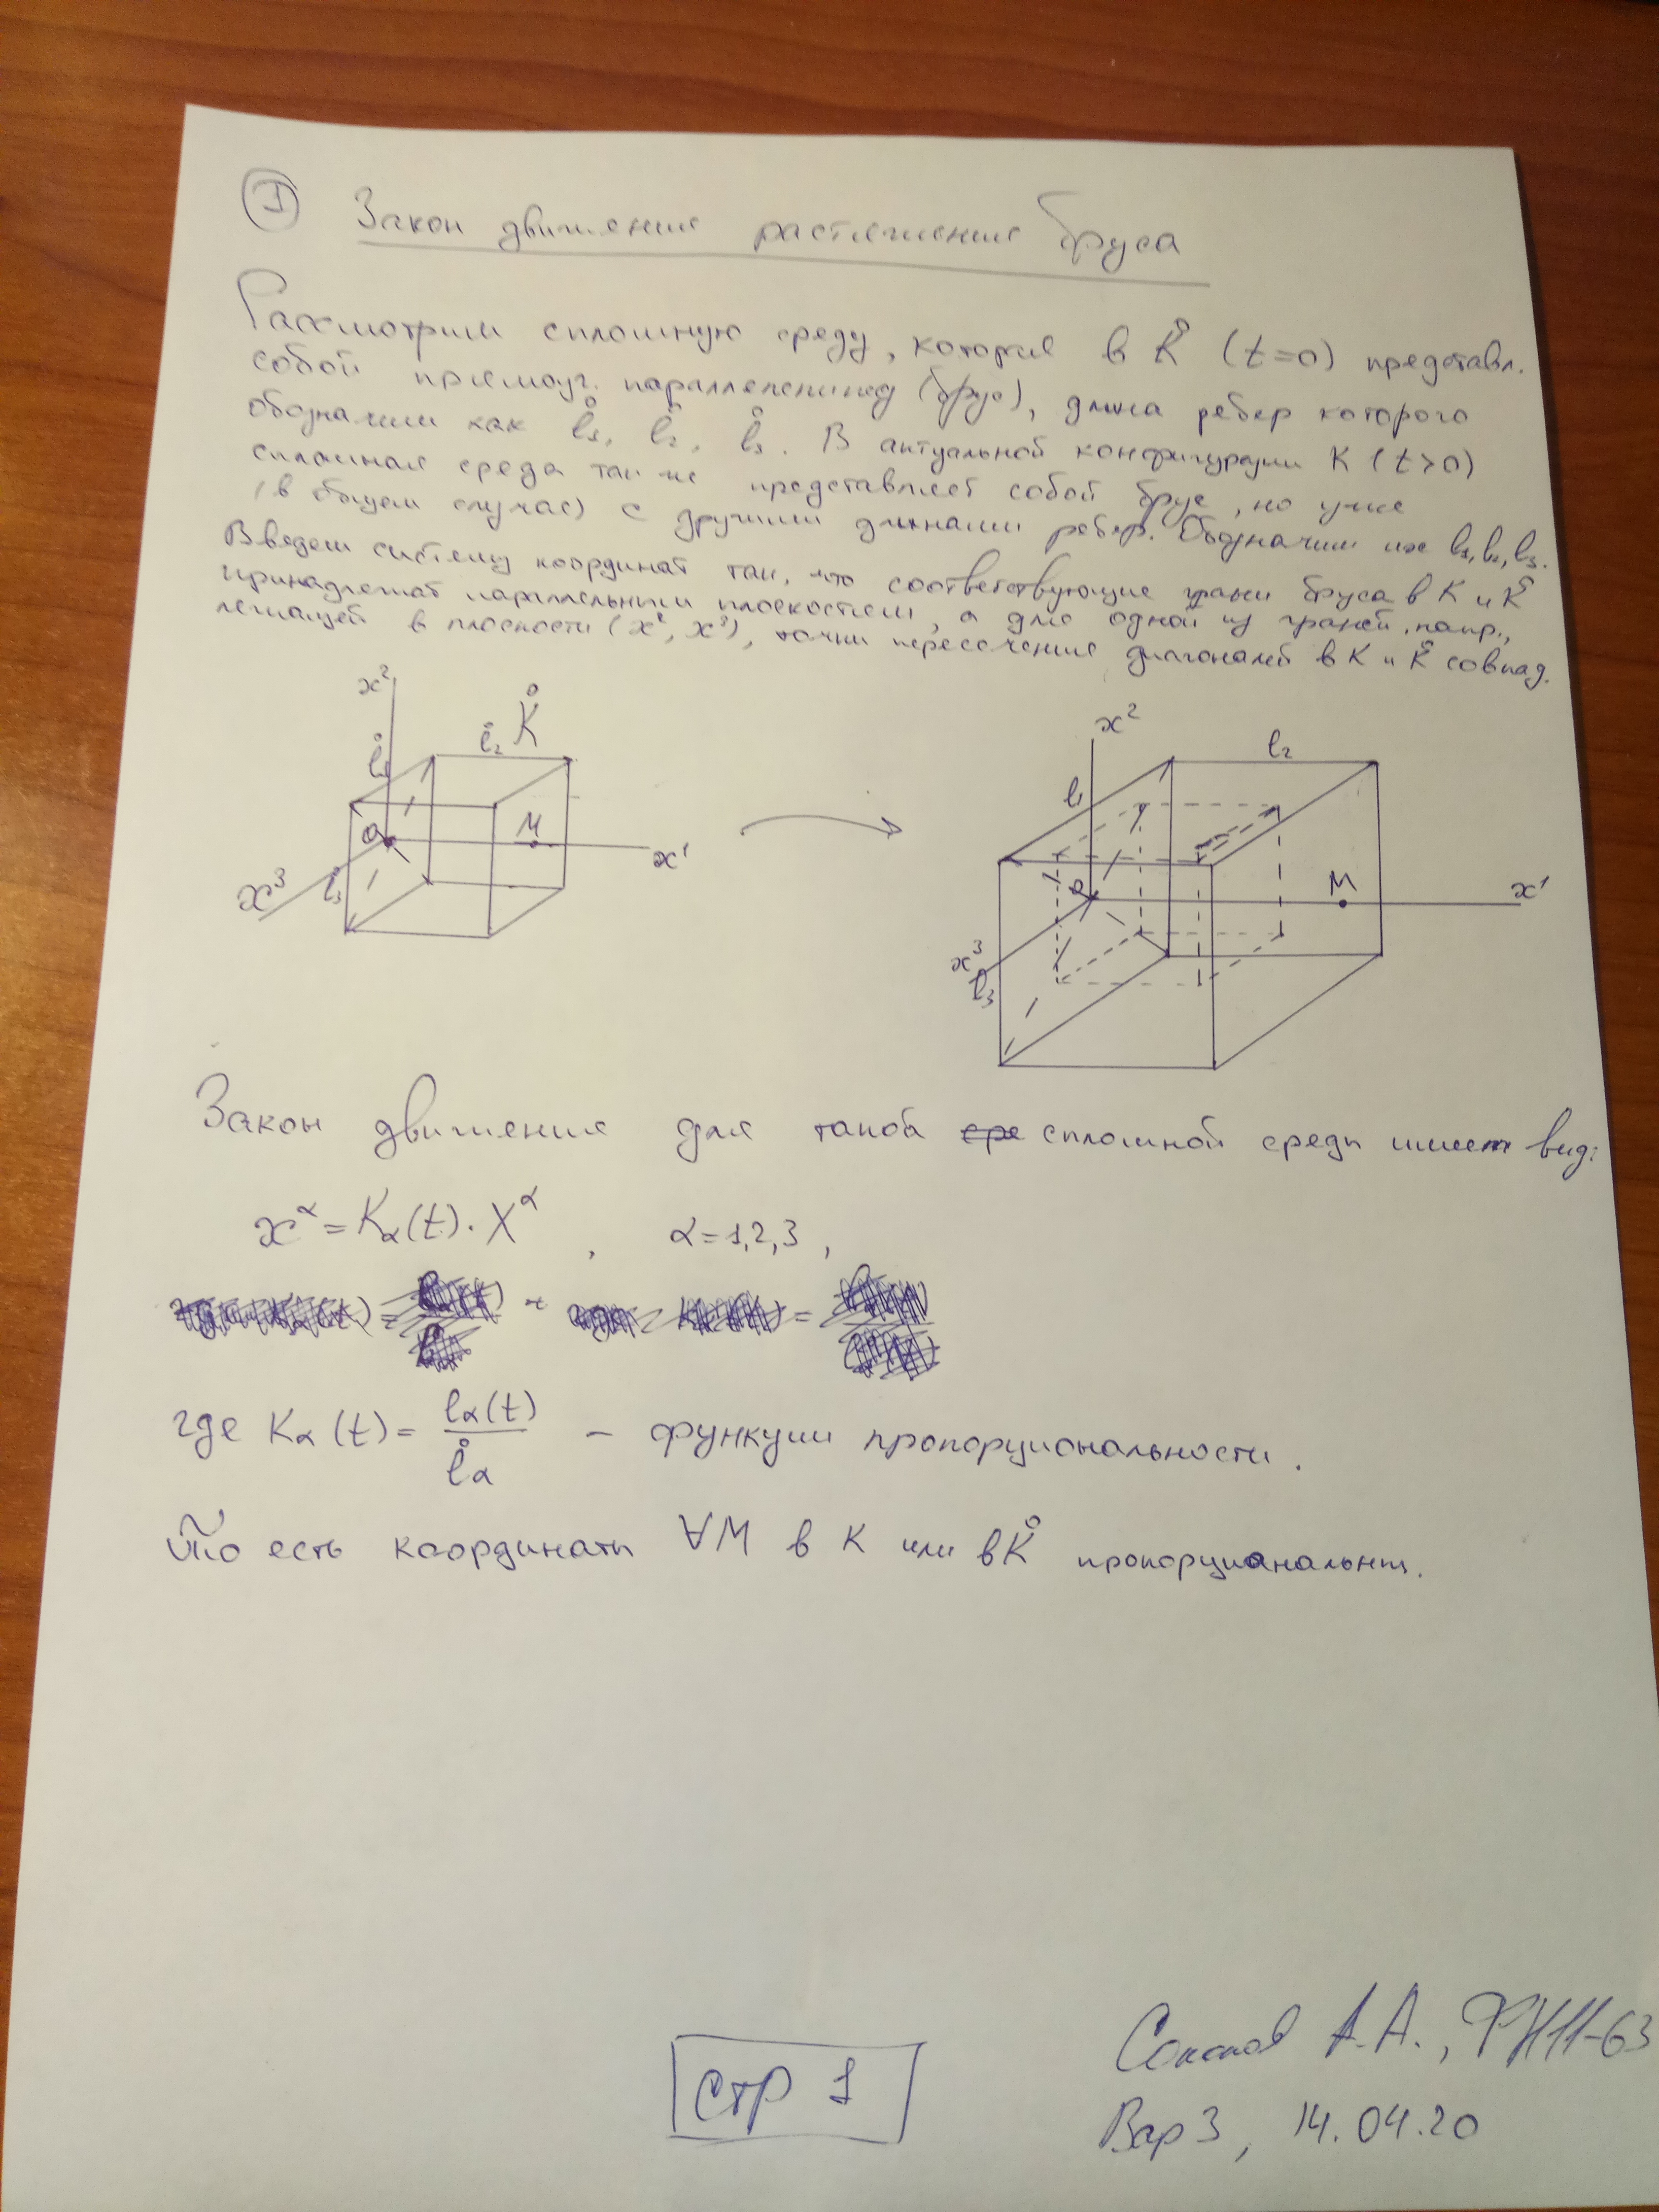 ① Закон движения растяжения бруса
Рассмотрим сплошную среду, которая в K̊ (t=0) представл.
собой прямоуг. параллелепипед (брус), длина ребер которого
обозначим как l̊₁, l̊₂, l̊₃. В актуальной конфигурации K (t>0)
сплошная среда также представляет собой брус, но уже
(в общем случае) с другими длинами ребер. Обозначим их l₁, l₂, l₃.
Введем систему координат так, что соответствующие грани бруса в K и K̊
принадлежат параллельным плоскостям, а для одной из граней, напр.,
лежащей в плоскости (x², x³), точки пересечения диагоналей в K и K̊ совпад.
x²
K̊
l̊₂
l̊₁
O
M
x¹
x³
l̊₃
x²
l₂
l₁
O
M
x¹
x³
l₃
Закон движения для такой сплошной среды имеет вид:
x^α = K_α(t) · X^α , α = 1,2,3 ,
где K_α(t) = l_α(t) / l̊_α – функции пропорциональности.
То есть координаты ∀M в K или в K̊ пропорциональны.
стр 1
А.А., ФН11-63
Вар 3, 14.04.20